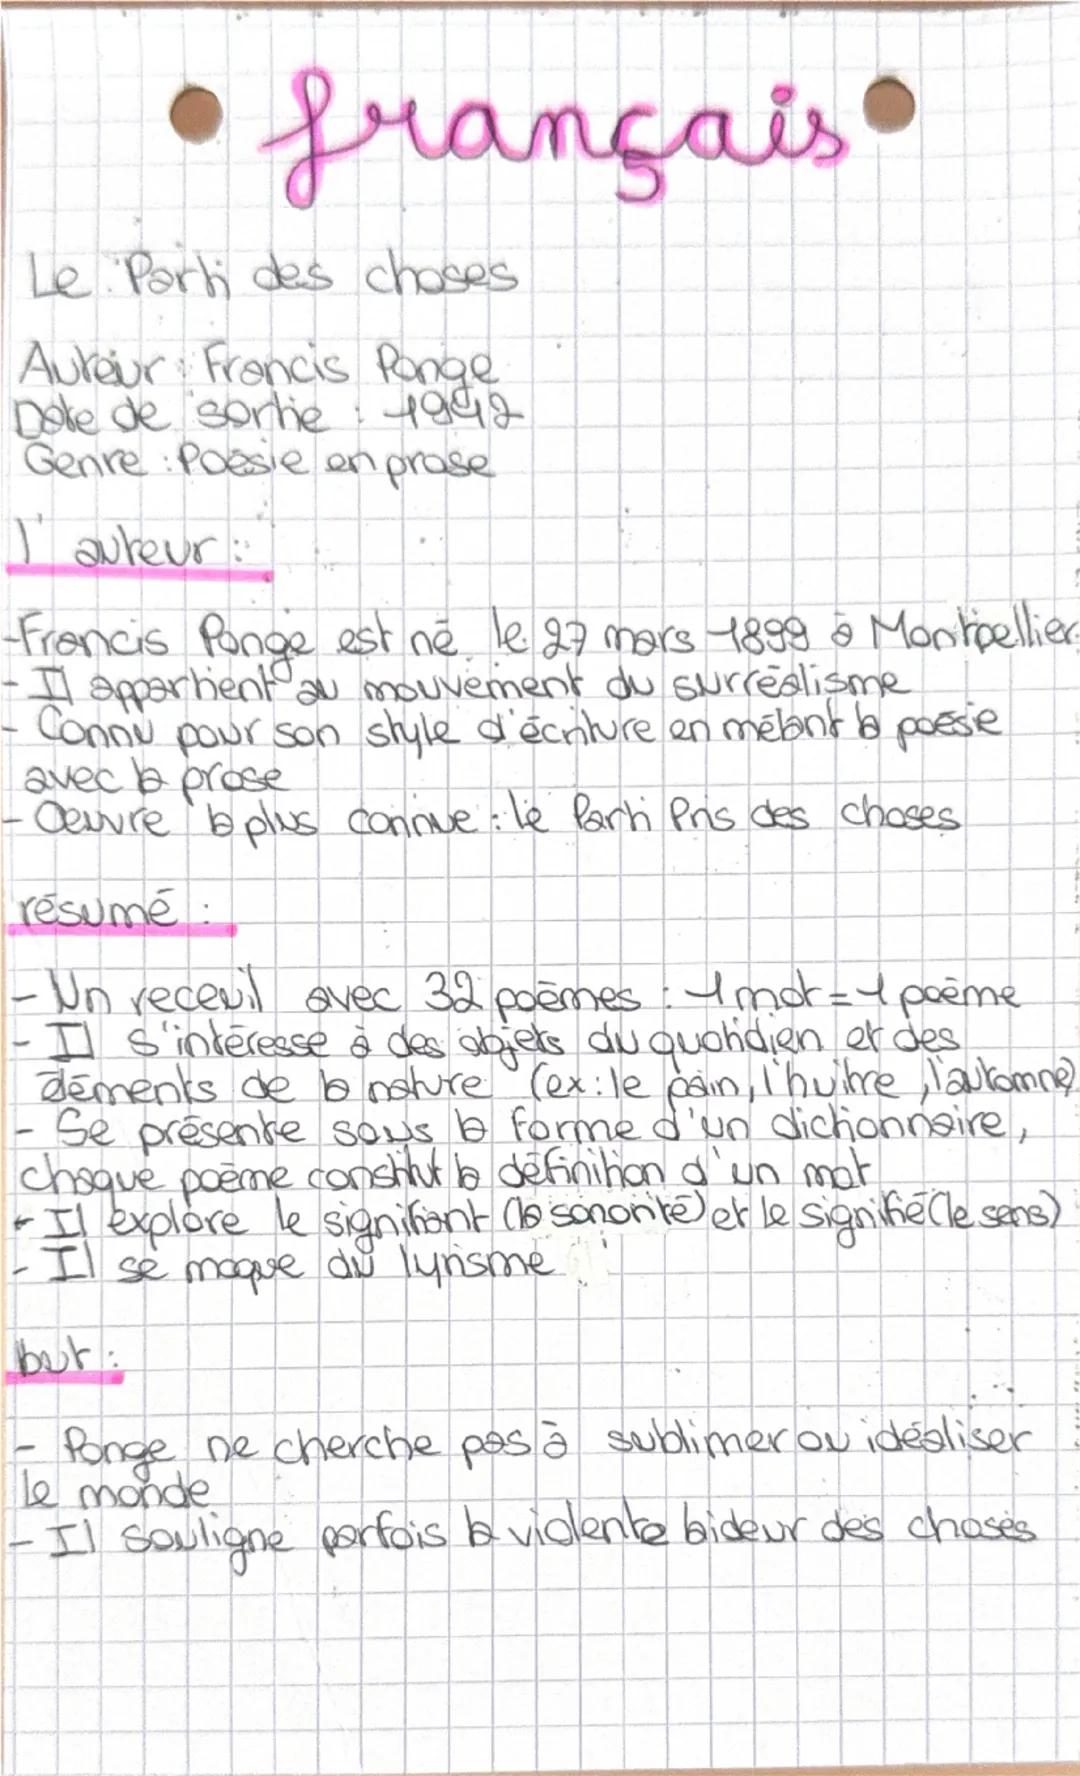 français
Le Parti des choses
Auteur : Francis Ponge
Date de sortie : 1942
Genre : Poésie en prose
l'auteur :
-Francis Ponge est né le 27 mars 1899 à Montpellier
- Il appartient au mouvement du surréalisme
- Connu pour son style d'écriture en mêlant la poésie
avec la prose
- Oeuvre la plus connue : le Parti Pris des choses
résumé :
- Un receuil avec 32 poèmes : 1 mot = 1 poème
- Il s'intéresse à des objets du quotidien et des
éléments de la nature (ex : le pain, l'huitre, l'automne)
- Se présente sous la forme d'un dictionnaire,
chaque poème constitut la définition d'un mot
- Il explore le signifiant (la sonorité) et le signifié (le sens)
- Il se moque du lyrisme
but :
- Ponge ne cherche pas à sublimer ou idéaliser
le monde
- Il souligne parfois la violente laideur des choses